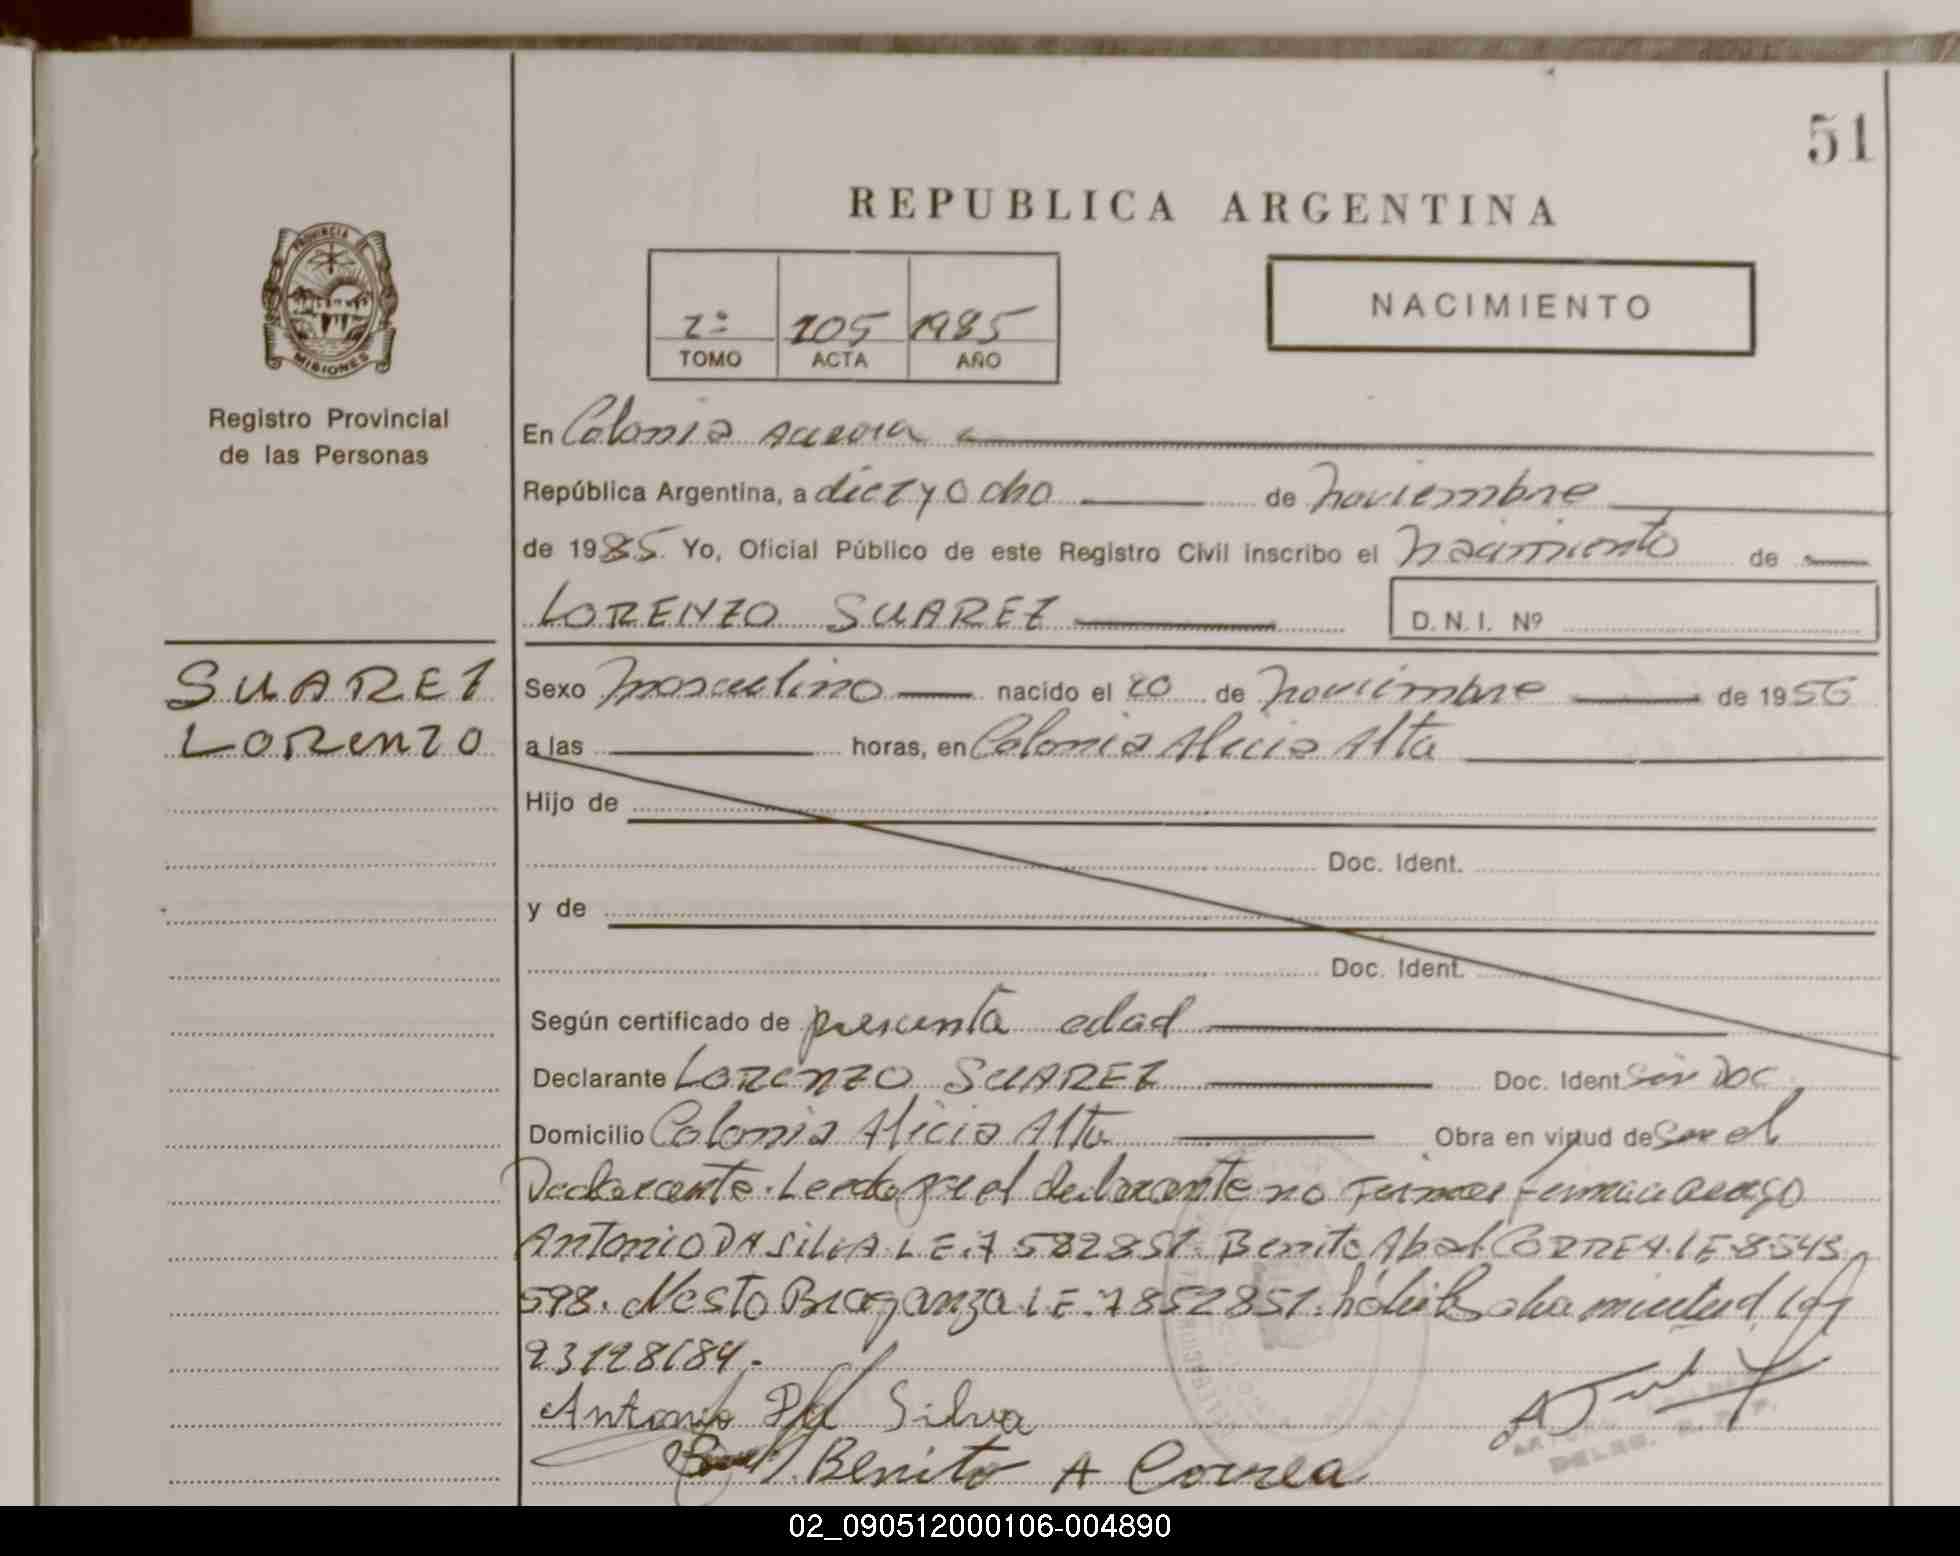 51
REPUBLICA ARGENTINA
PROVINCIA DE
MISIONES
Registro Provincial
de las Personas
2º 205 1985
TOMO ACTA AÑO
NACIMIENTO
En Colonia Aurora
República Argentina, a diez y ocho de noviembre
de 1985. Yo, Oficial Público de este Registro Civil inscribo el nacimiento de
LORENZO SUAREZ D. N. I. Nº
SUAREZ
LORENZO
Sexo masculino nacido el 20 de noviembre de 1956
a las horas, en Colonia Alicia Alta
Hijo de
Doc. Ident.
y de
Doc. Ident.
Según certificado de presunta edad
Declarante LORENZO SUAREZ Doc. Ident Sin Doc.
Domicilio Colonia Alicia Alta Obra en virtud de ser el
Declarante. Leida por el declarante no Firmar firma a ruego
Antonio DA SILVA. L E. 7 582851. Benito Abel CORREA. L E 8543
598. Nesto Braganza L E. 7852851.
93128684.
Antonio Da Silva
Benito A Correa
02_090512000106-004890